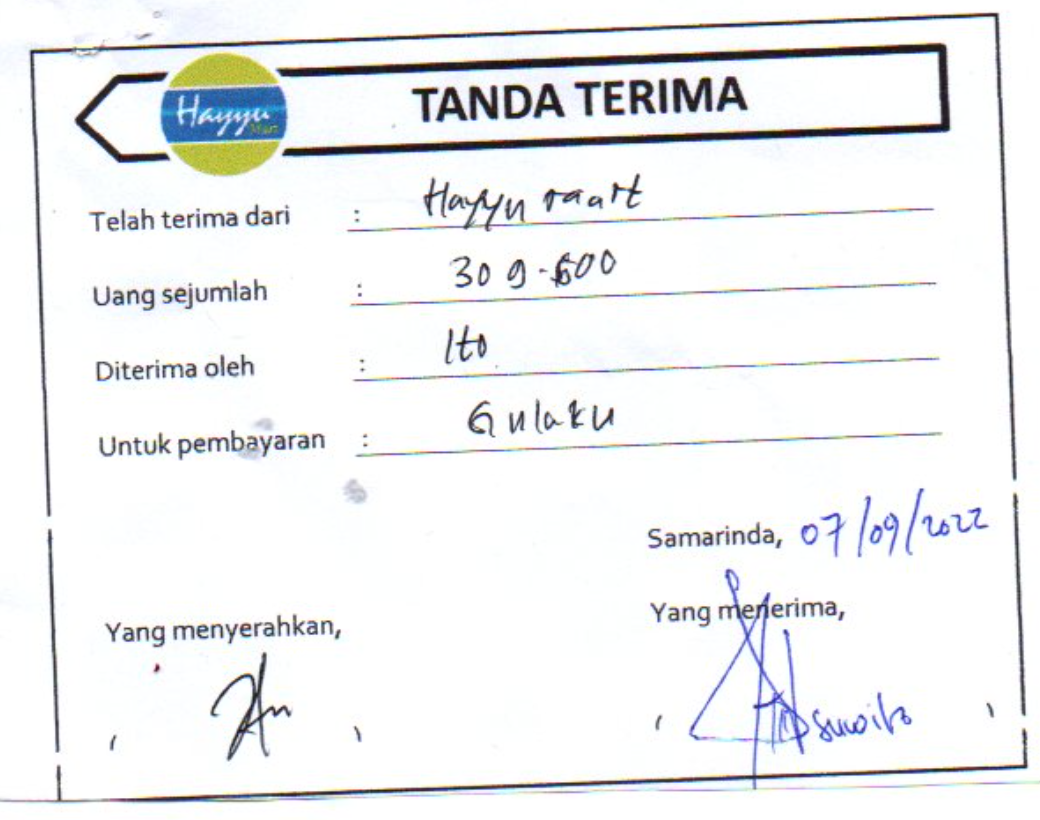 Hayyu
Mart
TANDA TERIMA
Telah terima dari : Hayyu maart
Uang sejumlah : 309.600
Diterima oleh : Ito
Untuk pembayaran : Gulaku
Samarinda, 07/09/2022
Yang menyerahkan,
Yang menerima,
Suwito